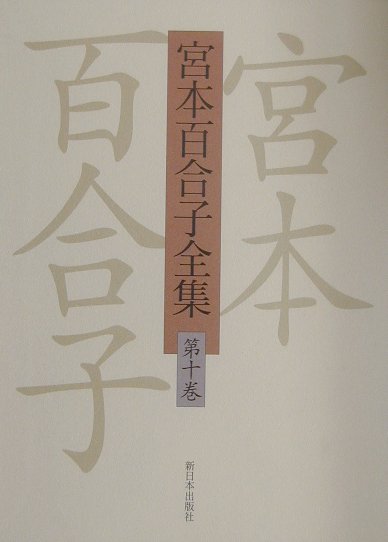 宮本
百合子
宮本百合子全集
第十巻
新日本出版社